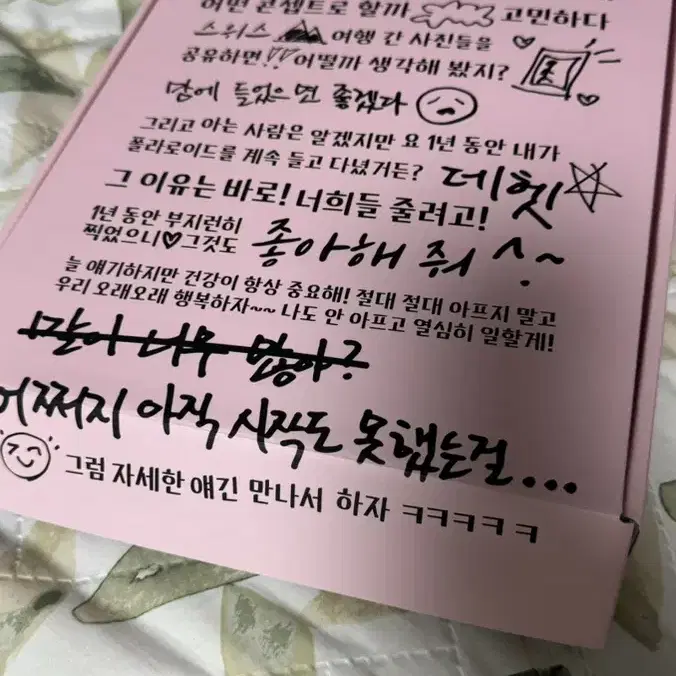 어떤 콘셉트로 할까 고민하다
스위스 여행 간 사진들을
공유하면!! 어떨까 생각해 봤지?
맘에 들었으면 좋겠다
그리고 아는 사람은 알겠지만 요 1년 동안 내가
폴라로이드를 계속 들고 다녔거든? 데헷
그 이유는 바로! 너희들 줄려고!
1년 동안 부지런히
찍었으니♥그것도 좋아해 줘 ^~
늘 얘기하지만 건강이 항상 중요해! 절대 절대 아프지 말고
우리 오래오래 행복하자~~ 나도 안 아프고 열심히 일할게!
말이 너무 많아?
어쩌지 아직 시작도 못했는걸...
그럼 자세한 얘긴 만나서 하자 ㅋㅋㅋㅋㅋ